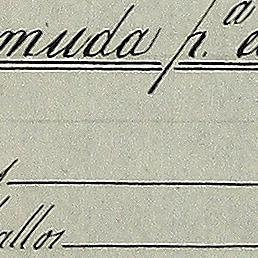 muda p.ª
allos